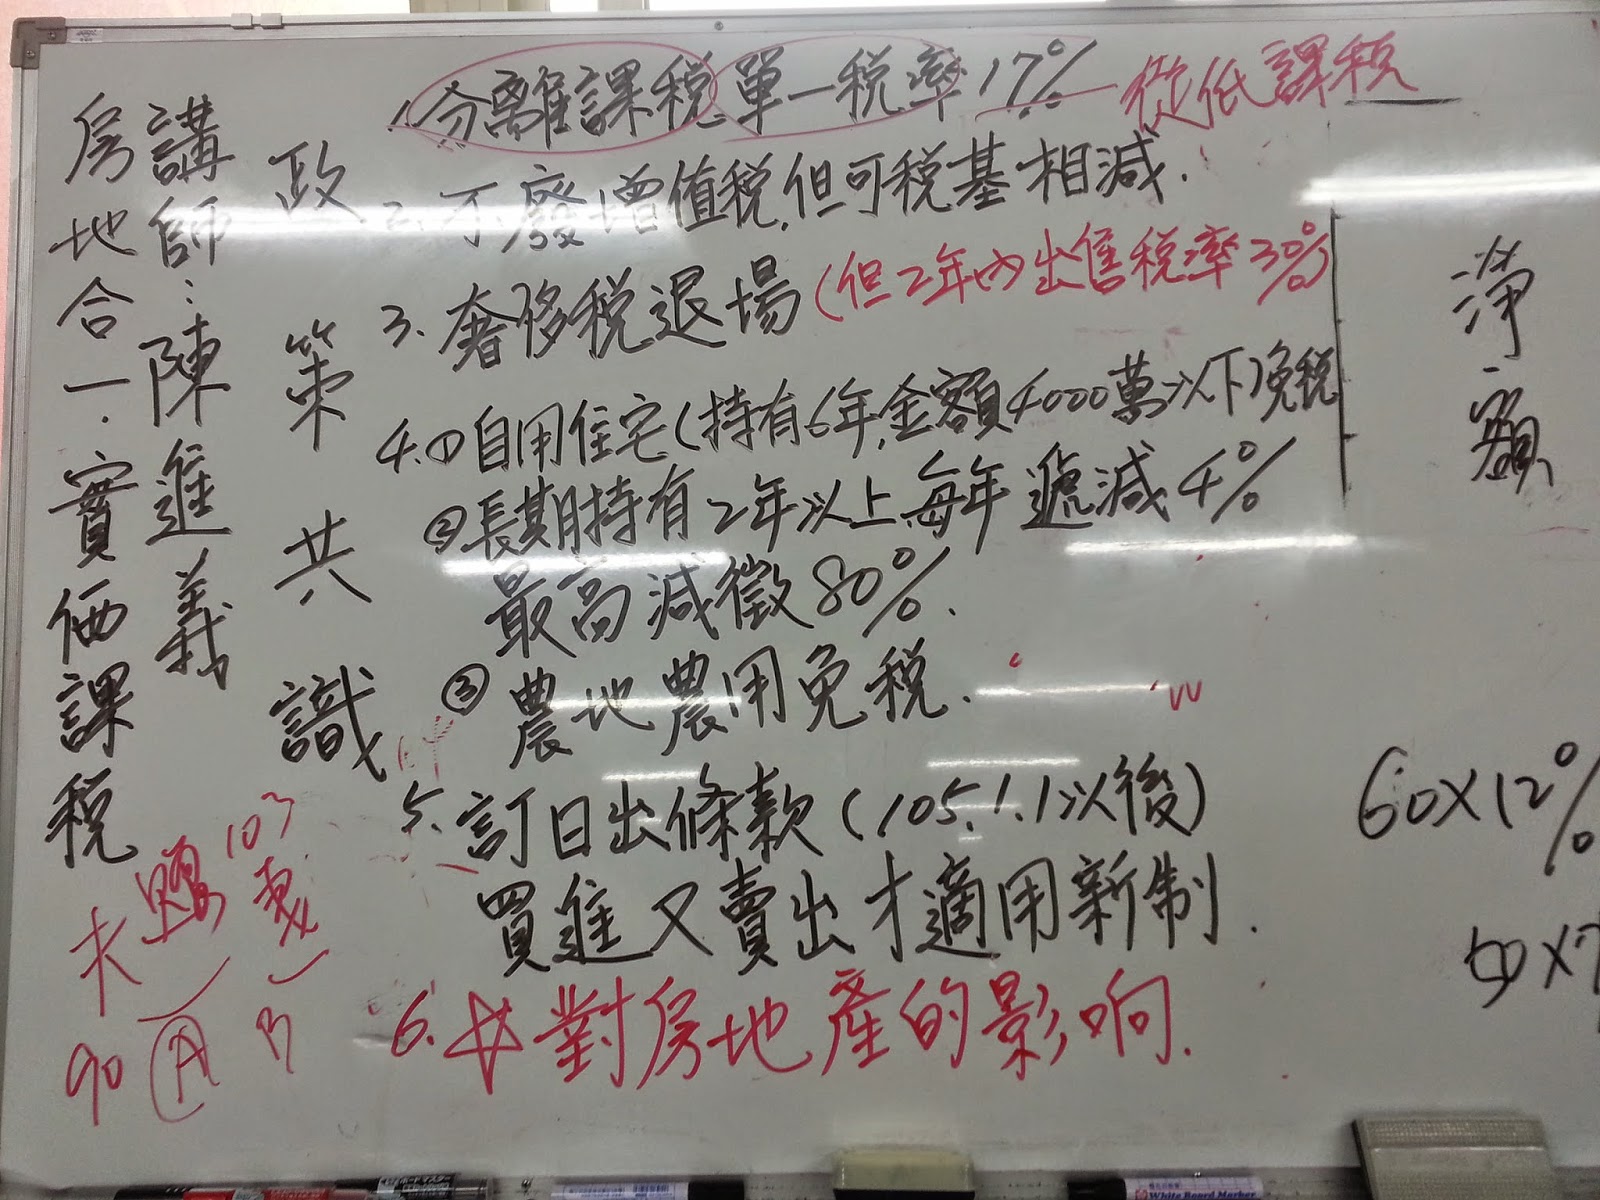 房地合一.實価課税
講師:陳進義
政策共識
1.分離課税.單一税率17% 從低課税
2.不廢增值税.但可税基相減.
3.奢侈税退場(但2年內出售税率30%)
4.①自用住宅(持有6年,金額4000萬以下)免税
②長期持有2年以上每年遞減4%
最高減徵80%.
③農地農用免税.
5.訂日出條款(105.1.1以後)
買進又賣出才適用新制.
6.對房地產的影响.
淨額
60X12%
50X7
103
90 A
White Board Marker